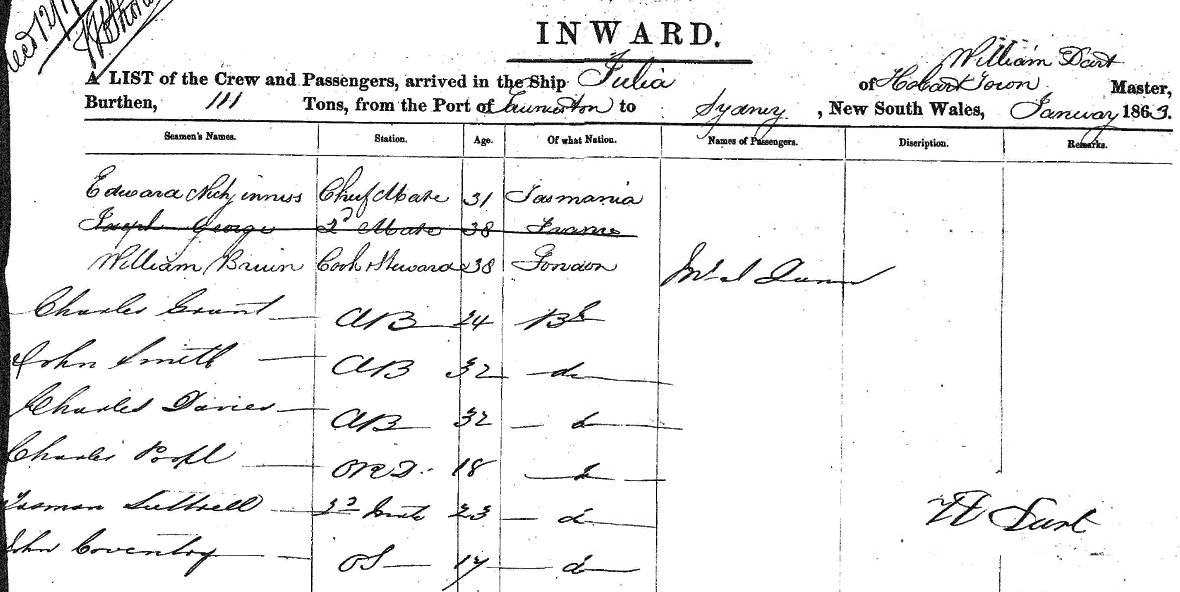 INWARD.
William Dart
A LIST of the Crew and Passengers, arrived in the Ship Julia of Hobart Town Master,
Burthen, 111 Tons, from the Port of Launceston to Sydney, New South Wales, January 1863.
Seamen's Names. Station. Age. Of what Nation. Names of Passengers. Discription. Remarks.
Edward Chief Mate 31 Tasmania
Joseph George 2d Mate 38 France
William Bruin Cook & Steward 38 London
Charles Grant AB 24 BS
John Smith AB 32 do
Charles Davies AB 32 do
Charles ORD. 18 do
Tasman Luttrell 2d Mate 23 do
W Dart
John Coventry OS 17 do